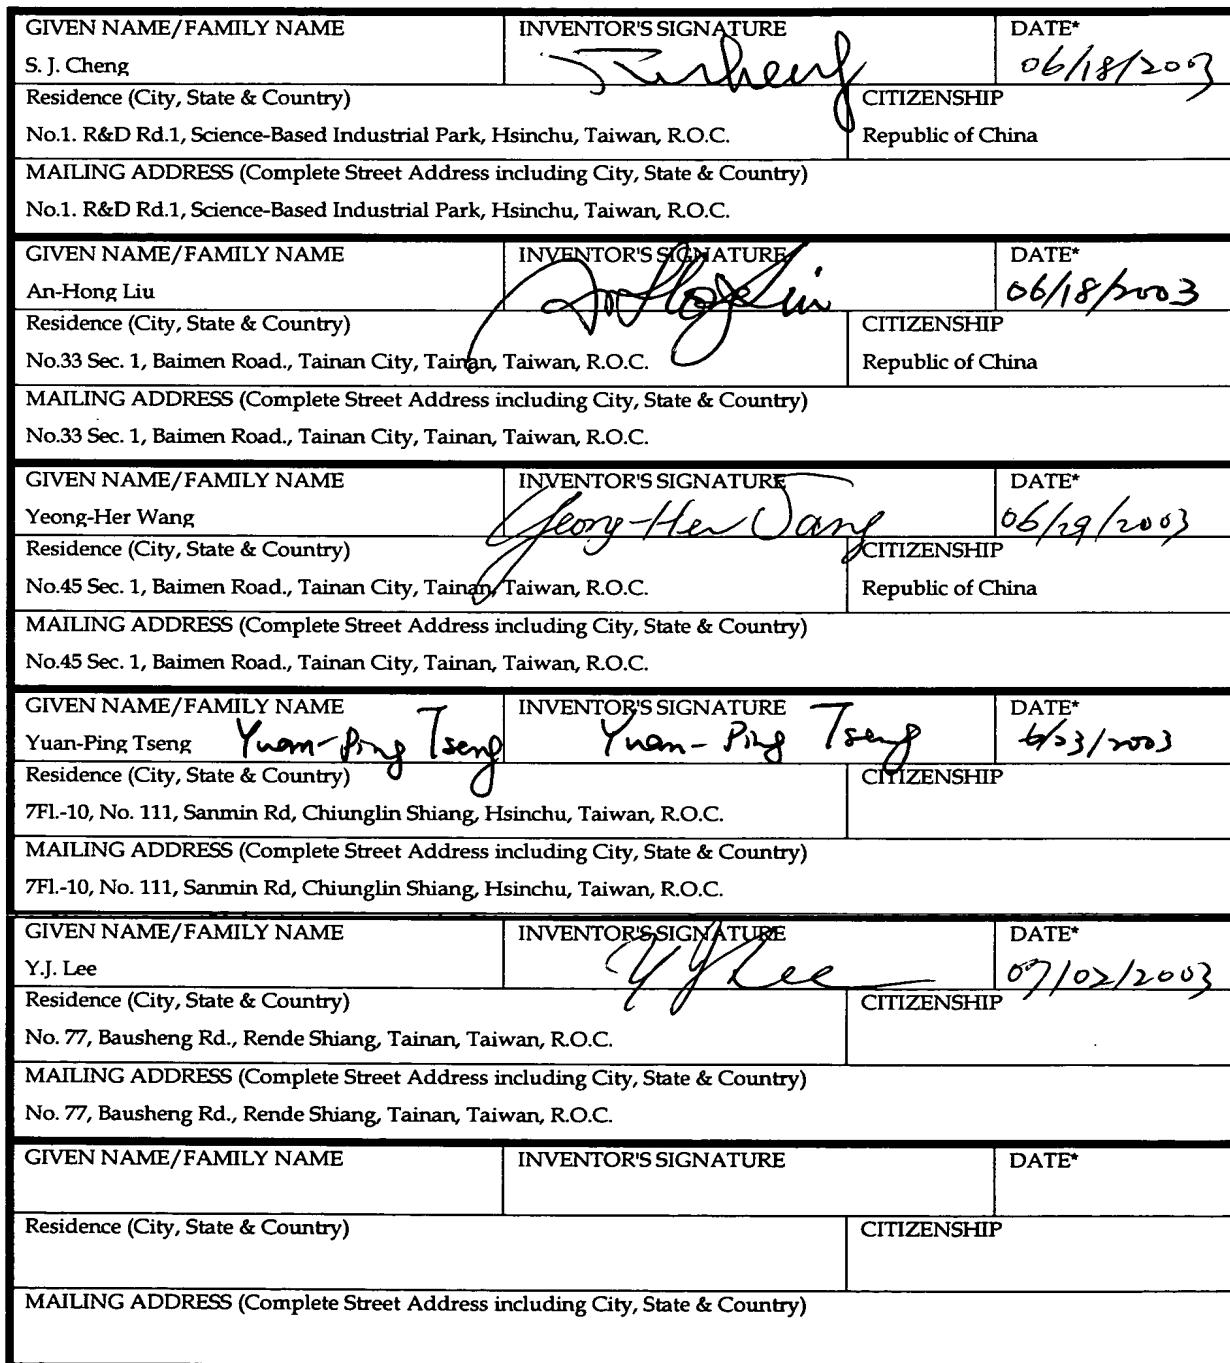 GIVEN NAME/FAMILY NAME INVENTOR'S SIGNATURE DATE*
S. J. Cheng 06/18/2003
Residence (City, State & Country) CITIZENSHIP
No.1. R&D Rd.1, Science-Based Industrial Park, Hsinchu, Taiwan, R.O.C. Republic of China
MAILING ADDRESS (Complete Street Address including City, State & Country)
No.1. R&D Rd.1, Science-Based Industrial Park, Hsinchu, Taiwan, R.O.C.
GIVEN NAME/FAMILY NAME INVENTOR'S SIGNATURE DATE*
An-Hong Liu An Hong Liu 06/18/2003
Residence (City, State & Country) CITIZENSHIP
No.33 Sec. 1, Baimen Road., Tainan City, Tainan, Taiwan, R.O.C. Republic of China
MAILING ADDRESS (Complete Street Address including City, State & Country)
No.33 Sec. 1, Baimen Road., Tainan City, Tainan, Taiwan, R.O.C.
GIVEN NAME/FAMILY NAME INVENTOR'S SIGNATURE DATE*
Yeong-Her Wang Yeong-Her Wang 06/29/2003
Residence (City, State & Country) CITIZENSHIP
No.45 Sec. 1, Baimen Road., Tainan City, Tainan, Taiwan, R.O.C. Republic of China
MAILING ADDRESS (Complete Street Address including City, State & Country)
No.45 Sec. 1, Baimen Road., Tainan City, Tainan, Taiwan, R.O.C.
GIVEN NAME/FAMILY NAME INVENTOR'S SIGNATURE DATE*
Yuan-Ping Tseng Yuan-Ping Tseng Yuan-Ping Tseng 6/23/2003
Residence (City, State & Country) CITIZENSHIP
7Fl.-10, No. 111, Sanmin Rd, Chiunglin Shiang, Hsinchu, Taiwan, R.O.C.
MAILING ADDRESS (Complete Street Address including City, State & Country)
7Fl.-10, No. 111, Sanmin Rd, Chiunglin Shiang, Hsinchu, Taiwan, R.O.C.
GIVEN NAME/FAMILY NAME INVENTOR'S SIGNATURE DATE*
Y.J. Lee Y J Lee 07/02/2003
Residence (City, State & Country) CITIZENSHIP
No. 77, Bausheng Rd., Rende Shiang, Tainan, Taiwan, R.O.C.
MAILING ADDRESS (Complete Street Address including City, State & Country)
No. 77, Bausheng Rd., Rende Shiang, Tainan, Taiwan, R.O.C.
GIVEN NAME/FAMILY NAME INVENTOR'S SIGNATURE DATE*
Residence (City, State & Country) CITIZENSHIP
MAILING ADDRESS (Complete Street Address including City, State & Country)